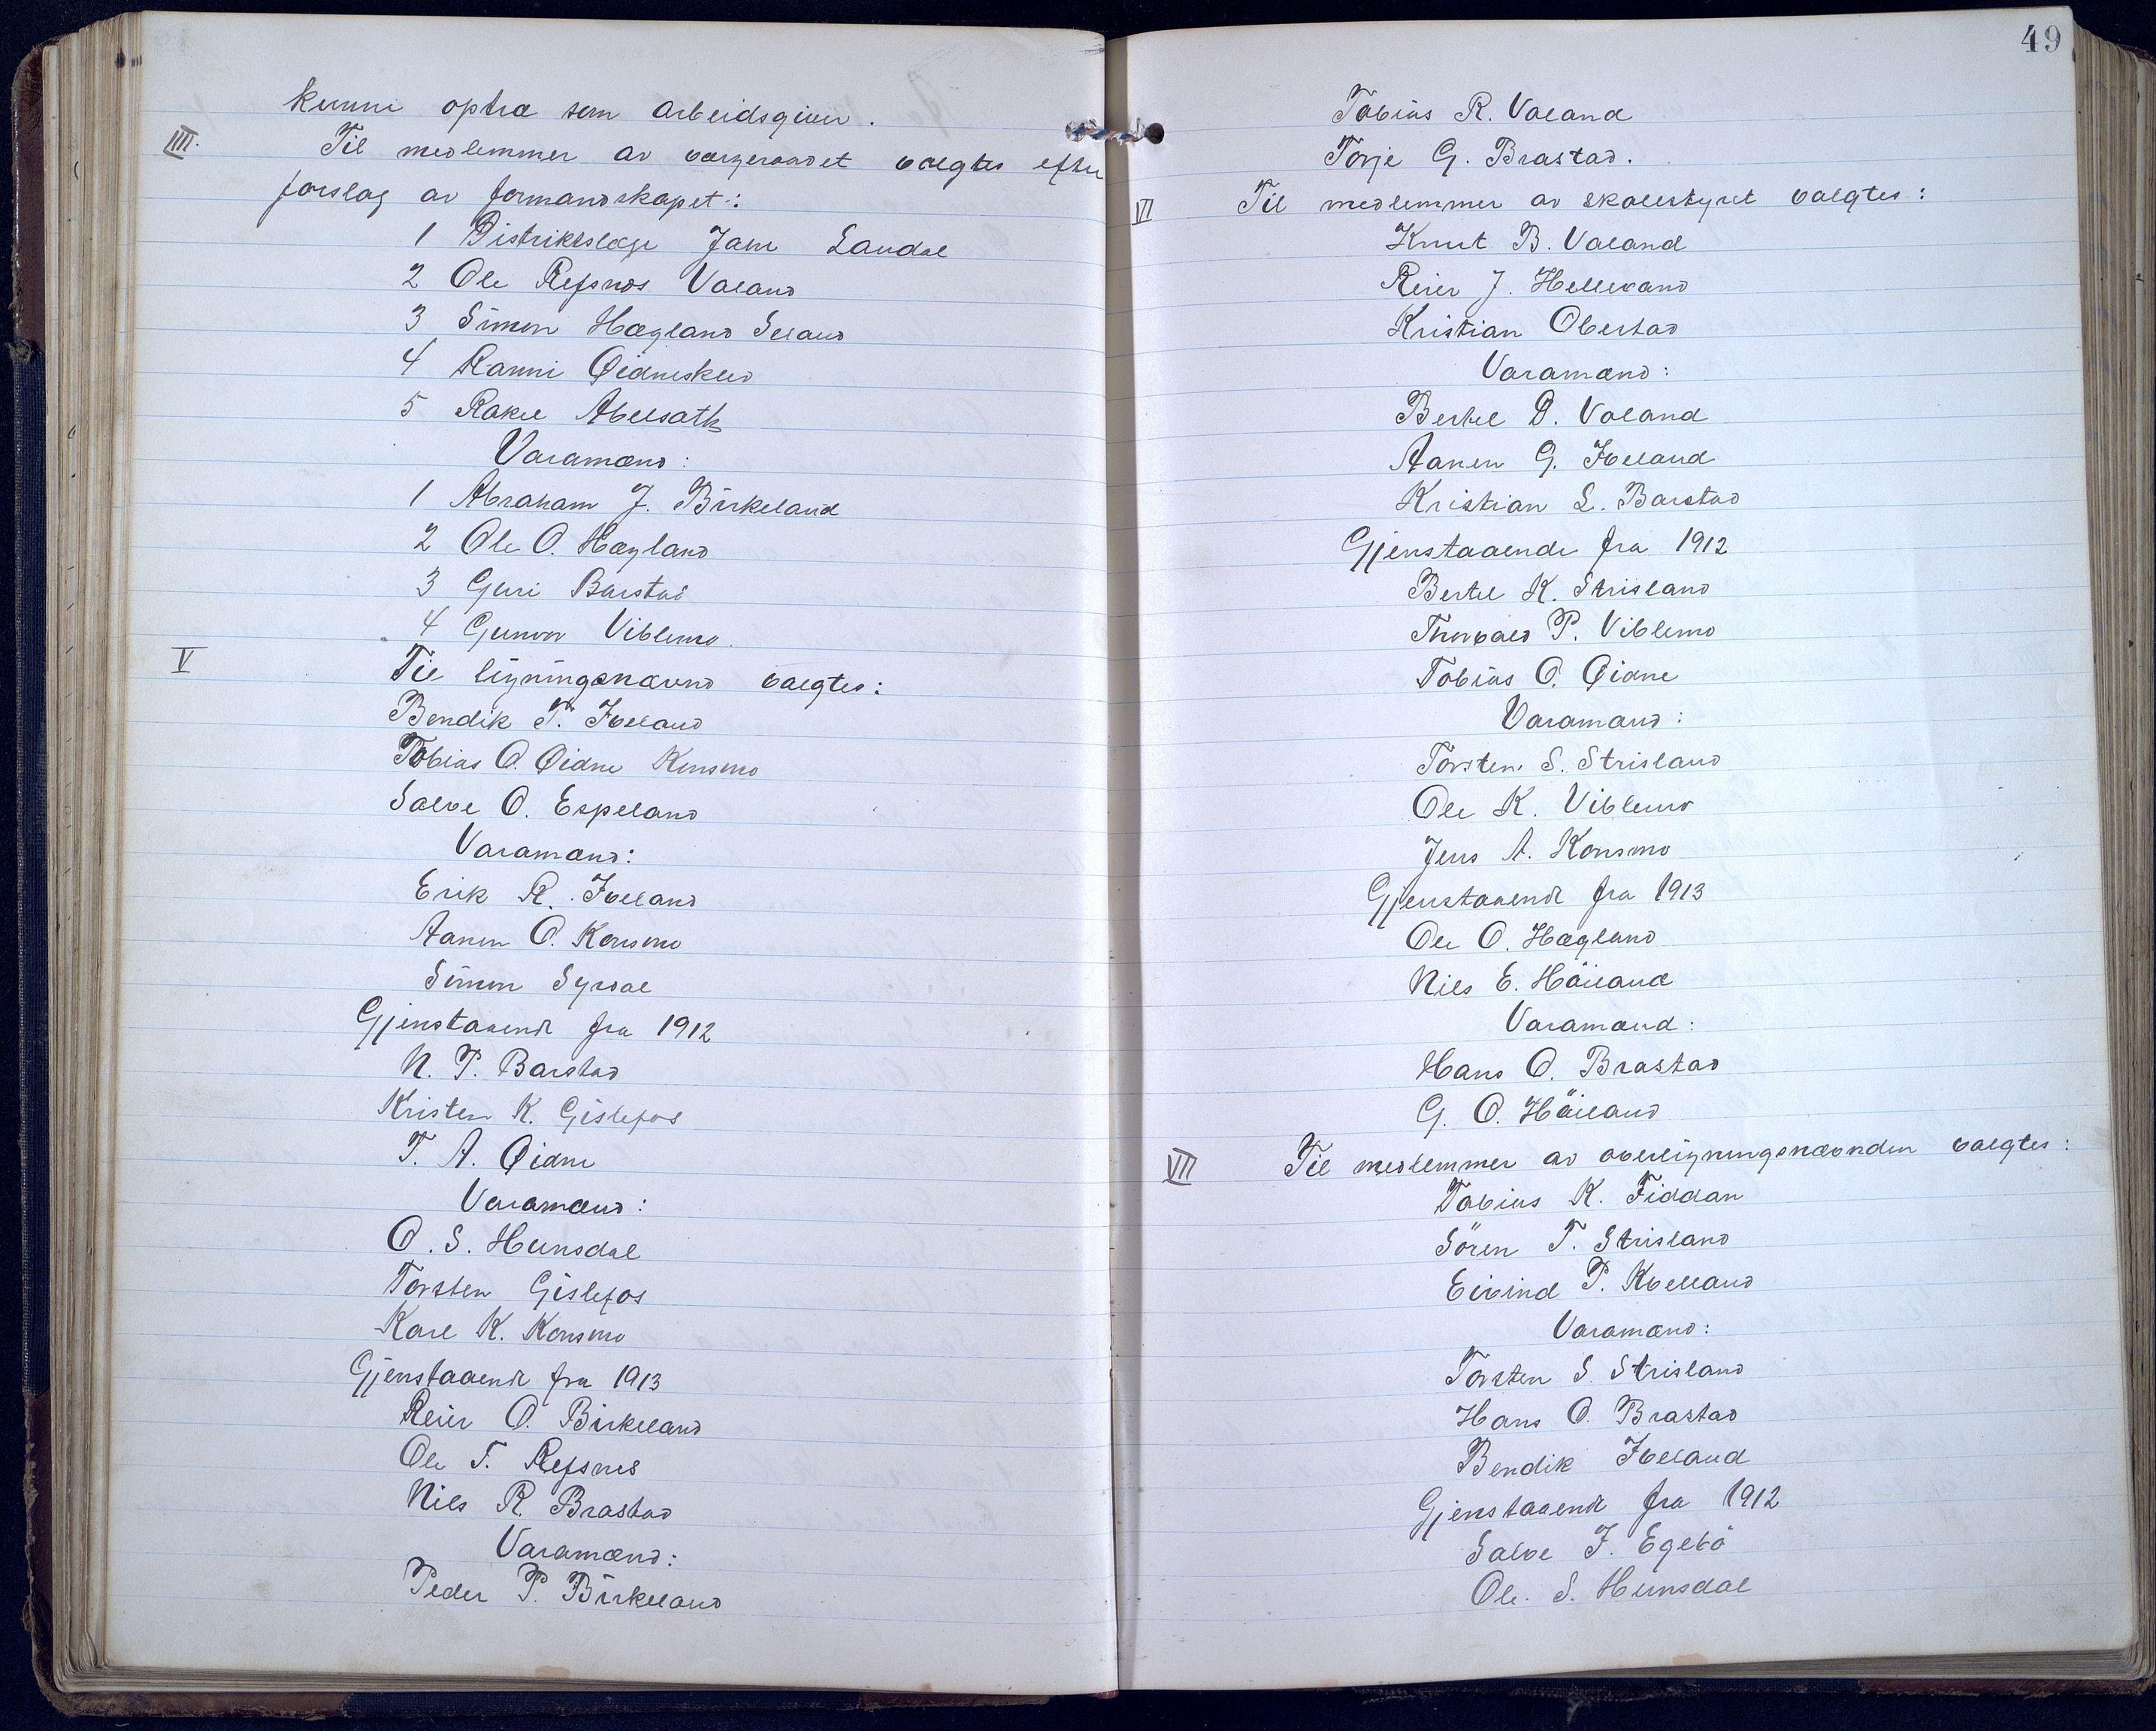 kunne optræ som arbeidsgiver.
IIII. Til medlemmer av værgeraadet valgtes efter
forslag av formandskapet:
1 Distriktslæge Jam Laudal
2 Ole Refsnes Valand
3 Simon Hægland Seland
4 Ranni Øidneskleiv
5 Rakel Abelsæth
Varamænd:
1 Abraham J. Birkeland
2 Ole O. Hægland
3 Guri Barstad
4 Gunvor Viblemo.
V Til ligningsnævnd valgtes:
Bendik T. Iveland
Tobias O. Øidne Konsmo
Salve O. Espeland
Varamænd:
Erik R. Iveland
Aanen O. Konsmo
Simon Syrdal
Gjenstaaende fra 1912
N. P. Barstad
Kristen K. Gislefos
T. A. Øidne
Varamænd:
O. S. Hunsdal
Torsten Gislefos
Karl K. Konsmo
Gjenstaaende fra 1913
Reier O. Birkeland
Ole T. Refsnes
Nils R. Brastad
Varamænd:
Peder P. Birkeland
49
Tobias R. Valand
Torje G. Brastad.
VI Til medlemmer av skolestyret valgtes:
Knut B. Valand
Reier J. Hellevand
Kristian Obestad
Varamænd:
Bertel D. Valand
Aanen G. Iveland
Kristian L. Barstad
Gjenstaaende fra 1912
Bertel K. Strisland
Thorvald P. Viblemo
Tobias O. Øidne
Varamænd:
Torsten S. Strisland
Ole K. Viblemo
Jens A. Konsmo
Gjenstaaende fra 1913
Ole O. Hægland
Nils E. Häiland
Varamænd:
Hans O. Brastad
G. O. Häiland
VII Til medlemmer av overligningsnævnden valgtes:
Tobias K. Fiddan
Sören T. Strisland
Eivind P. Kvelland
Varamænd:
Torsten S Strisland
Hans O. Brastad
Bendik Iveland
Gjenstaaende fra 1912
Salve J. Egebö
Ole. S. Hunsdal